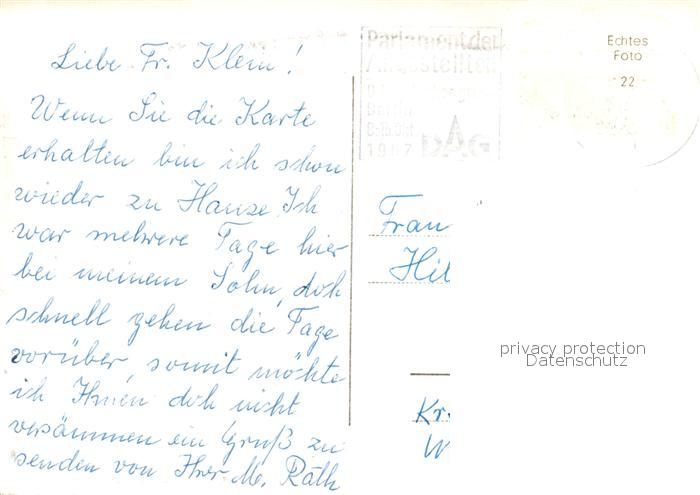 Liebe Fr. Klein!
Wenn Sie die Karte
erhalten bin ich schon
wieder zu Hause Ich
war mehrere Tage hier
bei meinem Sohn, doch
schnell gehen die Tage
vorüber, somit möchte
ich Ihnen doch nicht
versäumen ein Gruß zu
senden von Ihrer M. Räth
Parlament der
Angestellten
Berlin
8.-15. Okt
1967 DAG
Echtes
Foto
22
Frau
Hil
privacy protection
Datenschutz
Kr.
W